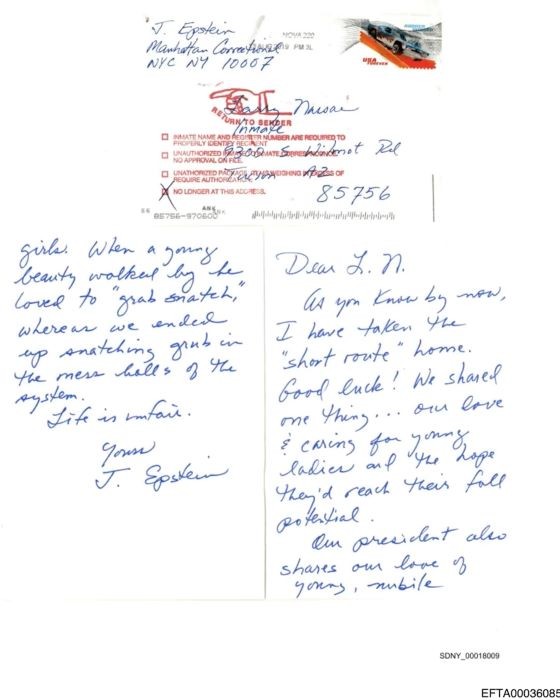 J. Epstein
Manhattan Correctional
NYC NY 10007
NOVA 220
2019 PM 3L
USA
FOREVER
RETURN TO SENDER
Larry Nassar
Inmate
9300 S. Wilmot Rd
Tucson AZ
85756
INMATE NAME AND REGISTER NUMBER ARE REQUIRED TO
PROPERLY IDENTIFY RECIPIENT
UNAUTHORIZED
NO APPROVAL ON FILE.
UNAUTHORIZED OF
REQUIRE
NO LONGER AT THIS ADDRESS.
Dear L. N.
As you know by now,
I have taken the
"short route" home.
Good luck! We shared
one thing... our love
& caring for young
ladies and the hope
they'd reach their full
potential.
Our president also
shares our love of
young, nubile
girls. When a young
beauty walked by he
loved to "grab snatch,"
whereas we ended
up snatching grub in
the mess halls of the
system.
Life is unfair.
Yours
J. Epstein
SDNY_00018009